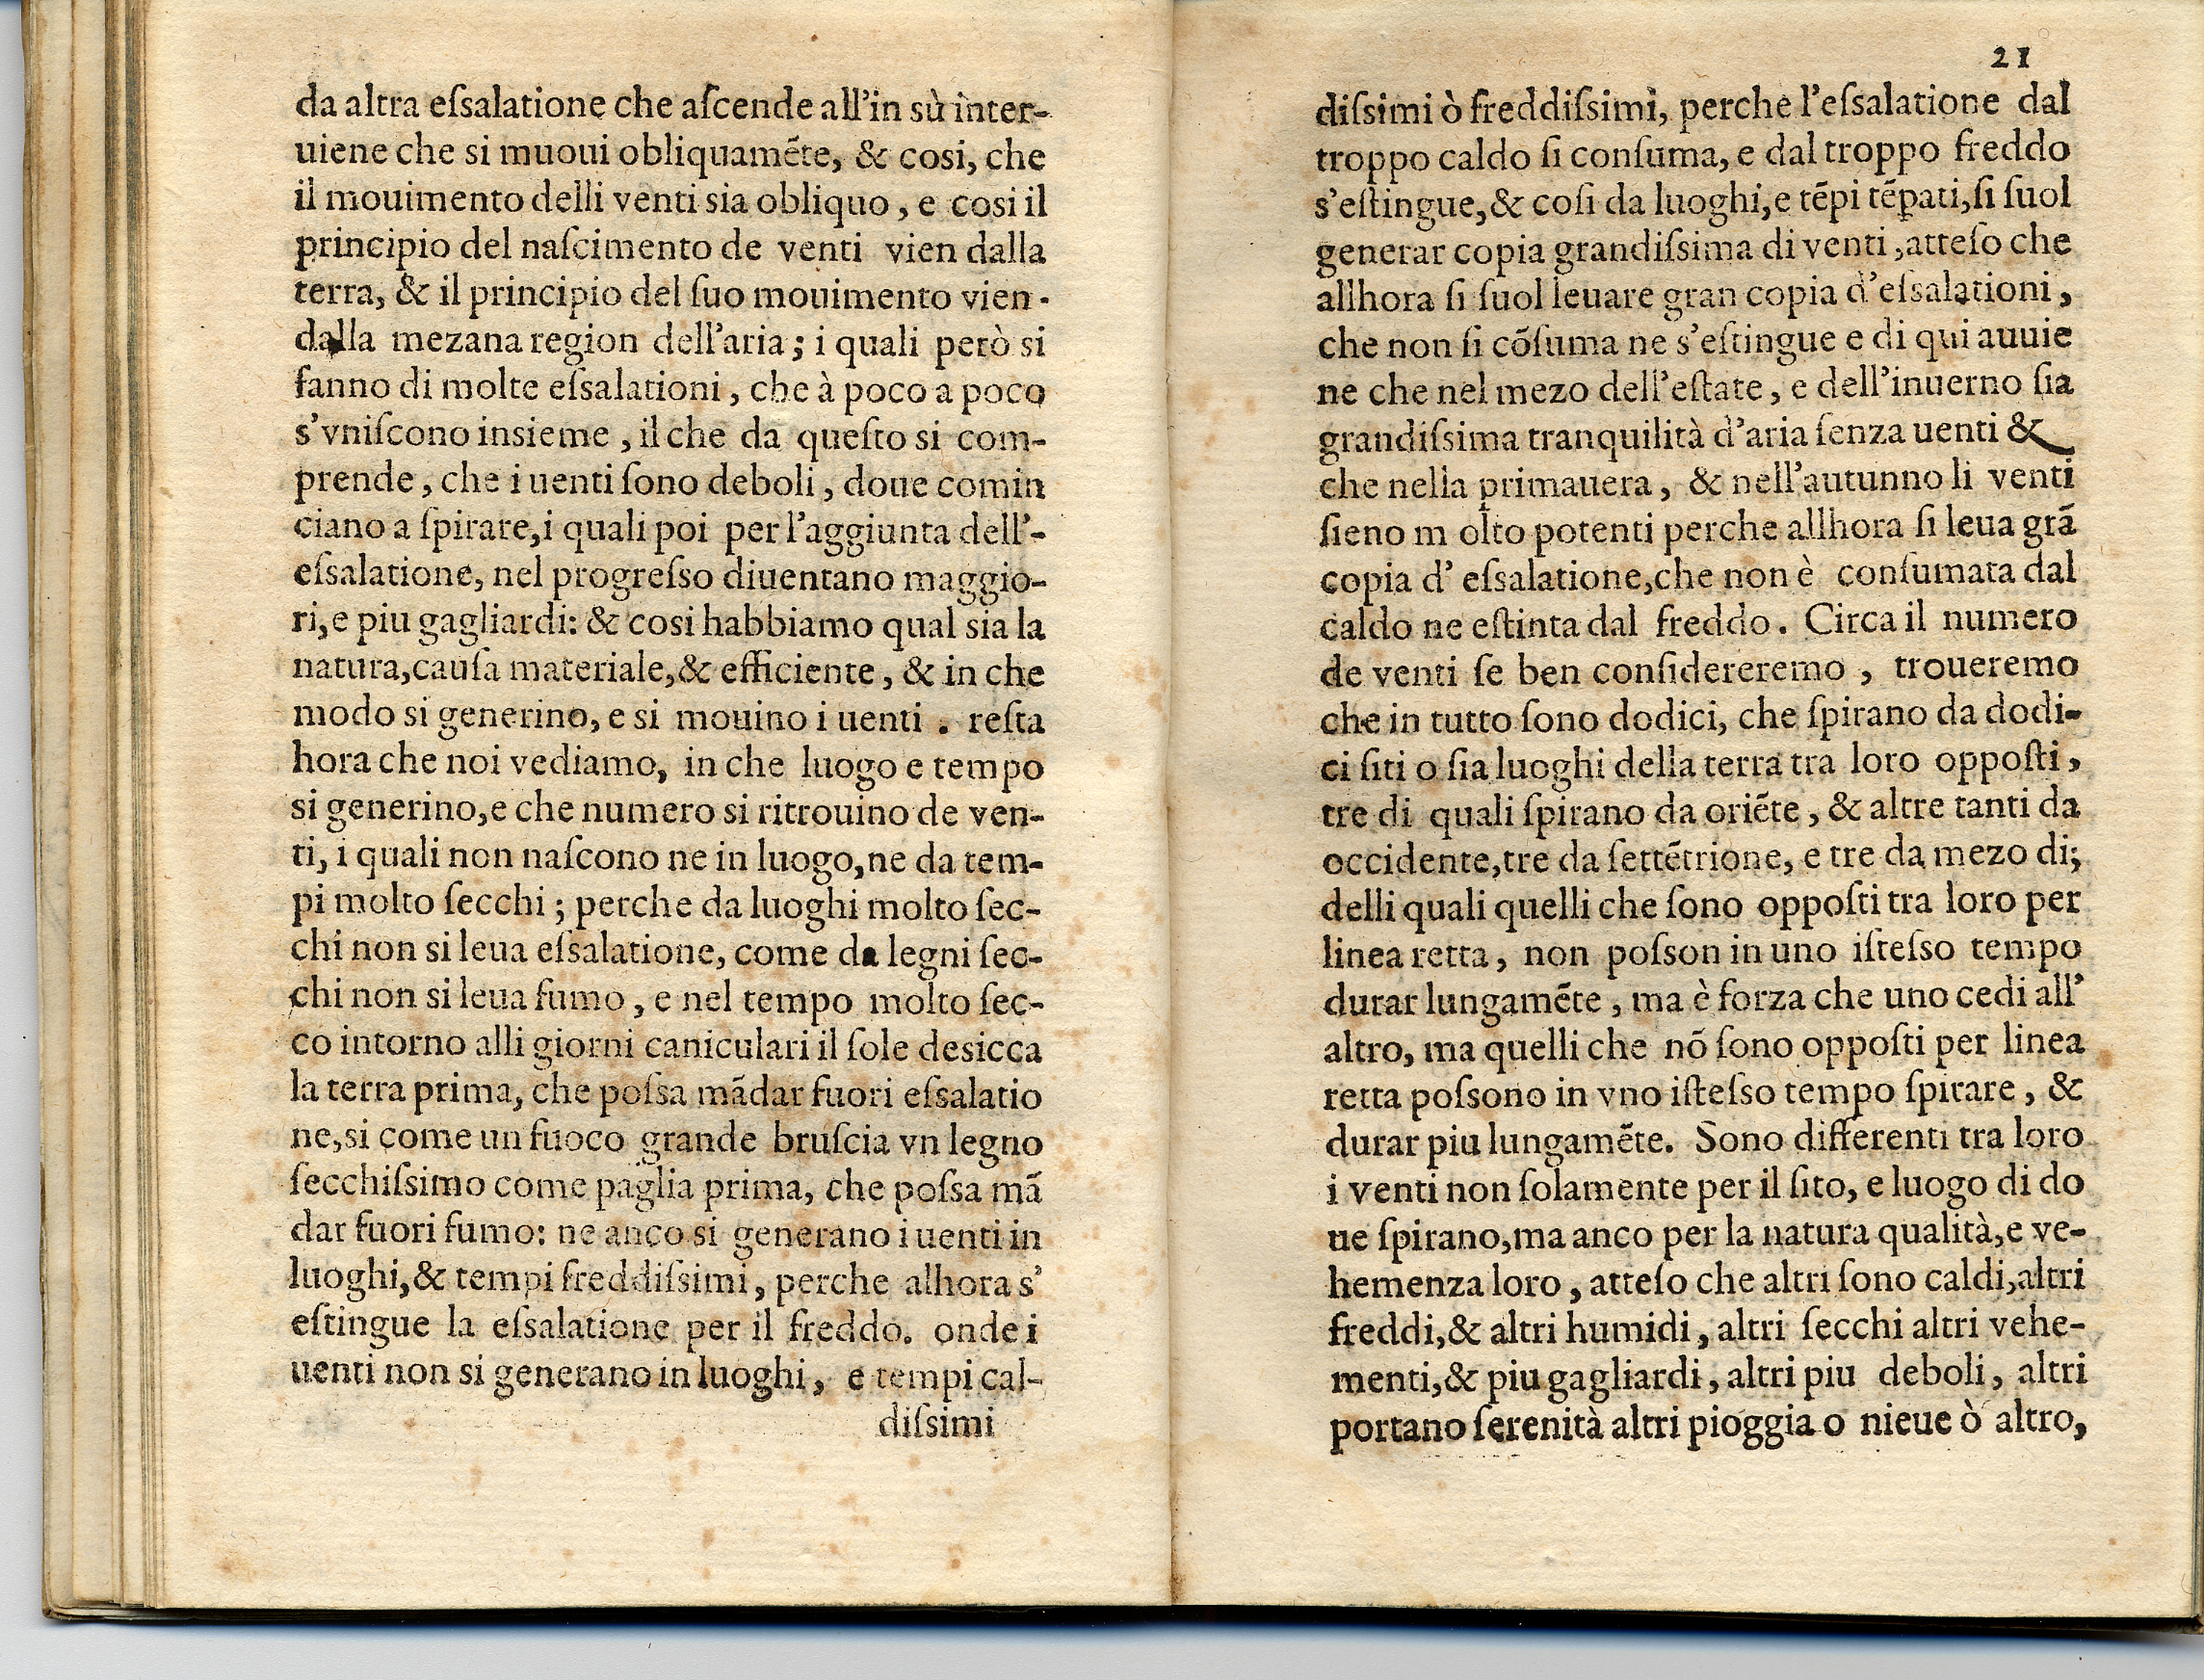 da altra eſsalatione che aſcende all'in sù inter-
uiene che si muoui obliquamēte, & cosi, che
il mouimento delli venti sia obliquo, e cosi il
principio del naſcimento de venti vien dalla
terra, & il principio del ſuo mouimento vien
dalla mezana region dell'aria; i quali però si
fanno di molte eſsalationi, che à poco a poco
s'vniſcono insieme, il che da queſto si com-
prende, che i uenti ſono deboli, doue comin
ciano a ſpirare, i quali poi per l'aggiunta dell'-
eſsalatione, nel progreſso diuentano maggio-
ri, e piu gagliardi: & cosi habbiamo qual sia la
natura, cauſa materiale, & efficiente, & in che
modo si generino, e si mouino i uenti . reſta
hora che noi vediamo, in che luogo e tempo
si generino, e che numero si ritrouino de ven-
ti, i quali non naſcono ne in luogo, ne da tem-
pi molto ſecchi; perche da luoghi molto ſec-
chi non si leua eſsalatione, come da legni ſec-
chi non si leua fumo, e nel tempo molto ſec-
co intorno alli giorni caniculari il ſole desicca
la terra prima, che poſsa mādar fuori eſsalatio
ne, si come un fuoco grande bruſcia vn legno
ſecchiſsimo come paglia prima, che poſsa mā
dar fuori fumo: ne anco si generano i uenti in
luoghi, & tempi freddiſsimi, perche alhora s'
eſtingue la eſsalatione per il freddo. onde i
uenti non si generano in luoghi, e tempi cal-
diſsimi
21
diſsimi ò freddiſsimi, perche l'eſsalatione dal
troppo caldo ſi conſuma, e dal troppo freddo
s'eſtingue, & coſi da luoghi, e tēpi tēꝑati, ſi ſuol
generar copia grandiſsima di venti, atteſo che
allhora ſi ſuol leuare gran copia d'eſsalationi,
che non ſi cōſuma ne s'eſtingue e di qui auuie
ne che nel mezo dell'eſtate, e dell'inuerno ſia
grandiſsima tranquilità d'aria ſenza uenti &
che nella primauera, & nell'autunno li venti
ſieno m olto potenti perche allhora ſi leua grā
copia d' eſsalatione, che non è conſumata dal
caldo ne eſtinta dal freddo. Circa il numero
de venti ſe ben conſidereremo, troueremo
che in tutto ſono dodici, che ſpirano da dodi-
ci ſiti o ſia luoghi della terra tra loro oppoſti,
tre di quali ſpirano da oriēte, & altre tanti da
occidente, tre da ſettētrione, e tre da mezo di;
delli quali quelli che ſono oppoſti tra loro per
linea retta, non poſson in uno iſteſso tempo
durar lungamēte, ma è forza che uno cedi all'
altro, ma quelli che nō ſono oppoſti per linea
retta poſsono in vno iſteſso tempo ſpirare, &
durar piu lungamēte. Sono differenti tra loro
i venti non ſolamente per il ſito, e luogo di do
ue ſpirano, ma anco per la natura qualità, e ve-
hemenza loro, atteſo che altri ſono caldi, altri
freddi, & altri humidi, altri ſecchi altri vehe-
menti, & piu gagliardi, altri piu deboli, altri
portano ſerenità altri pioggia o nieue ò altro,